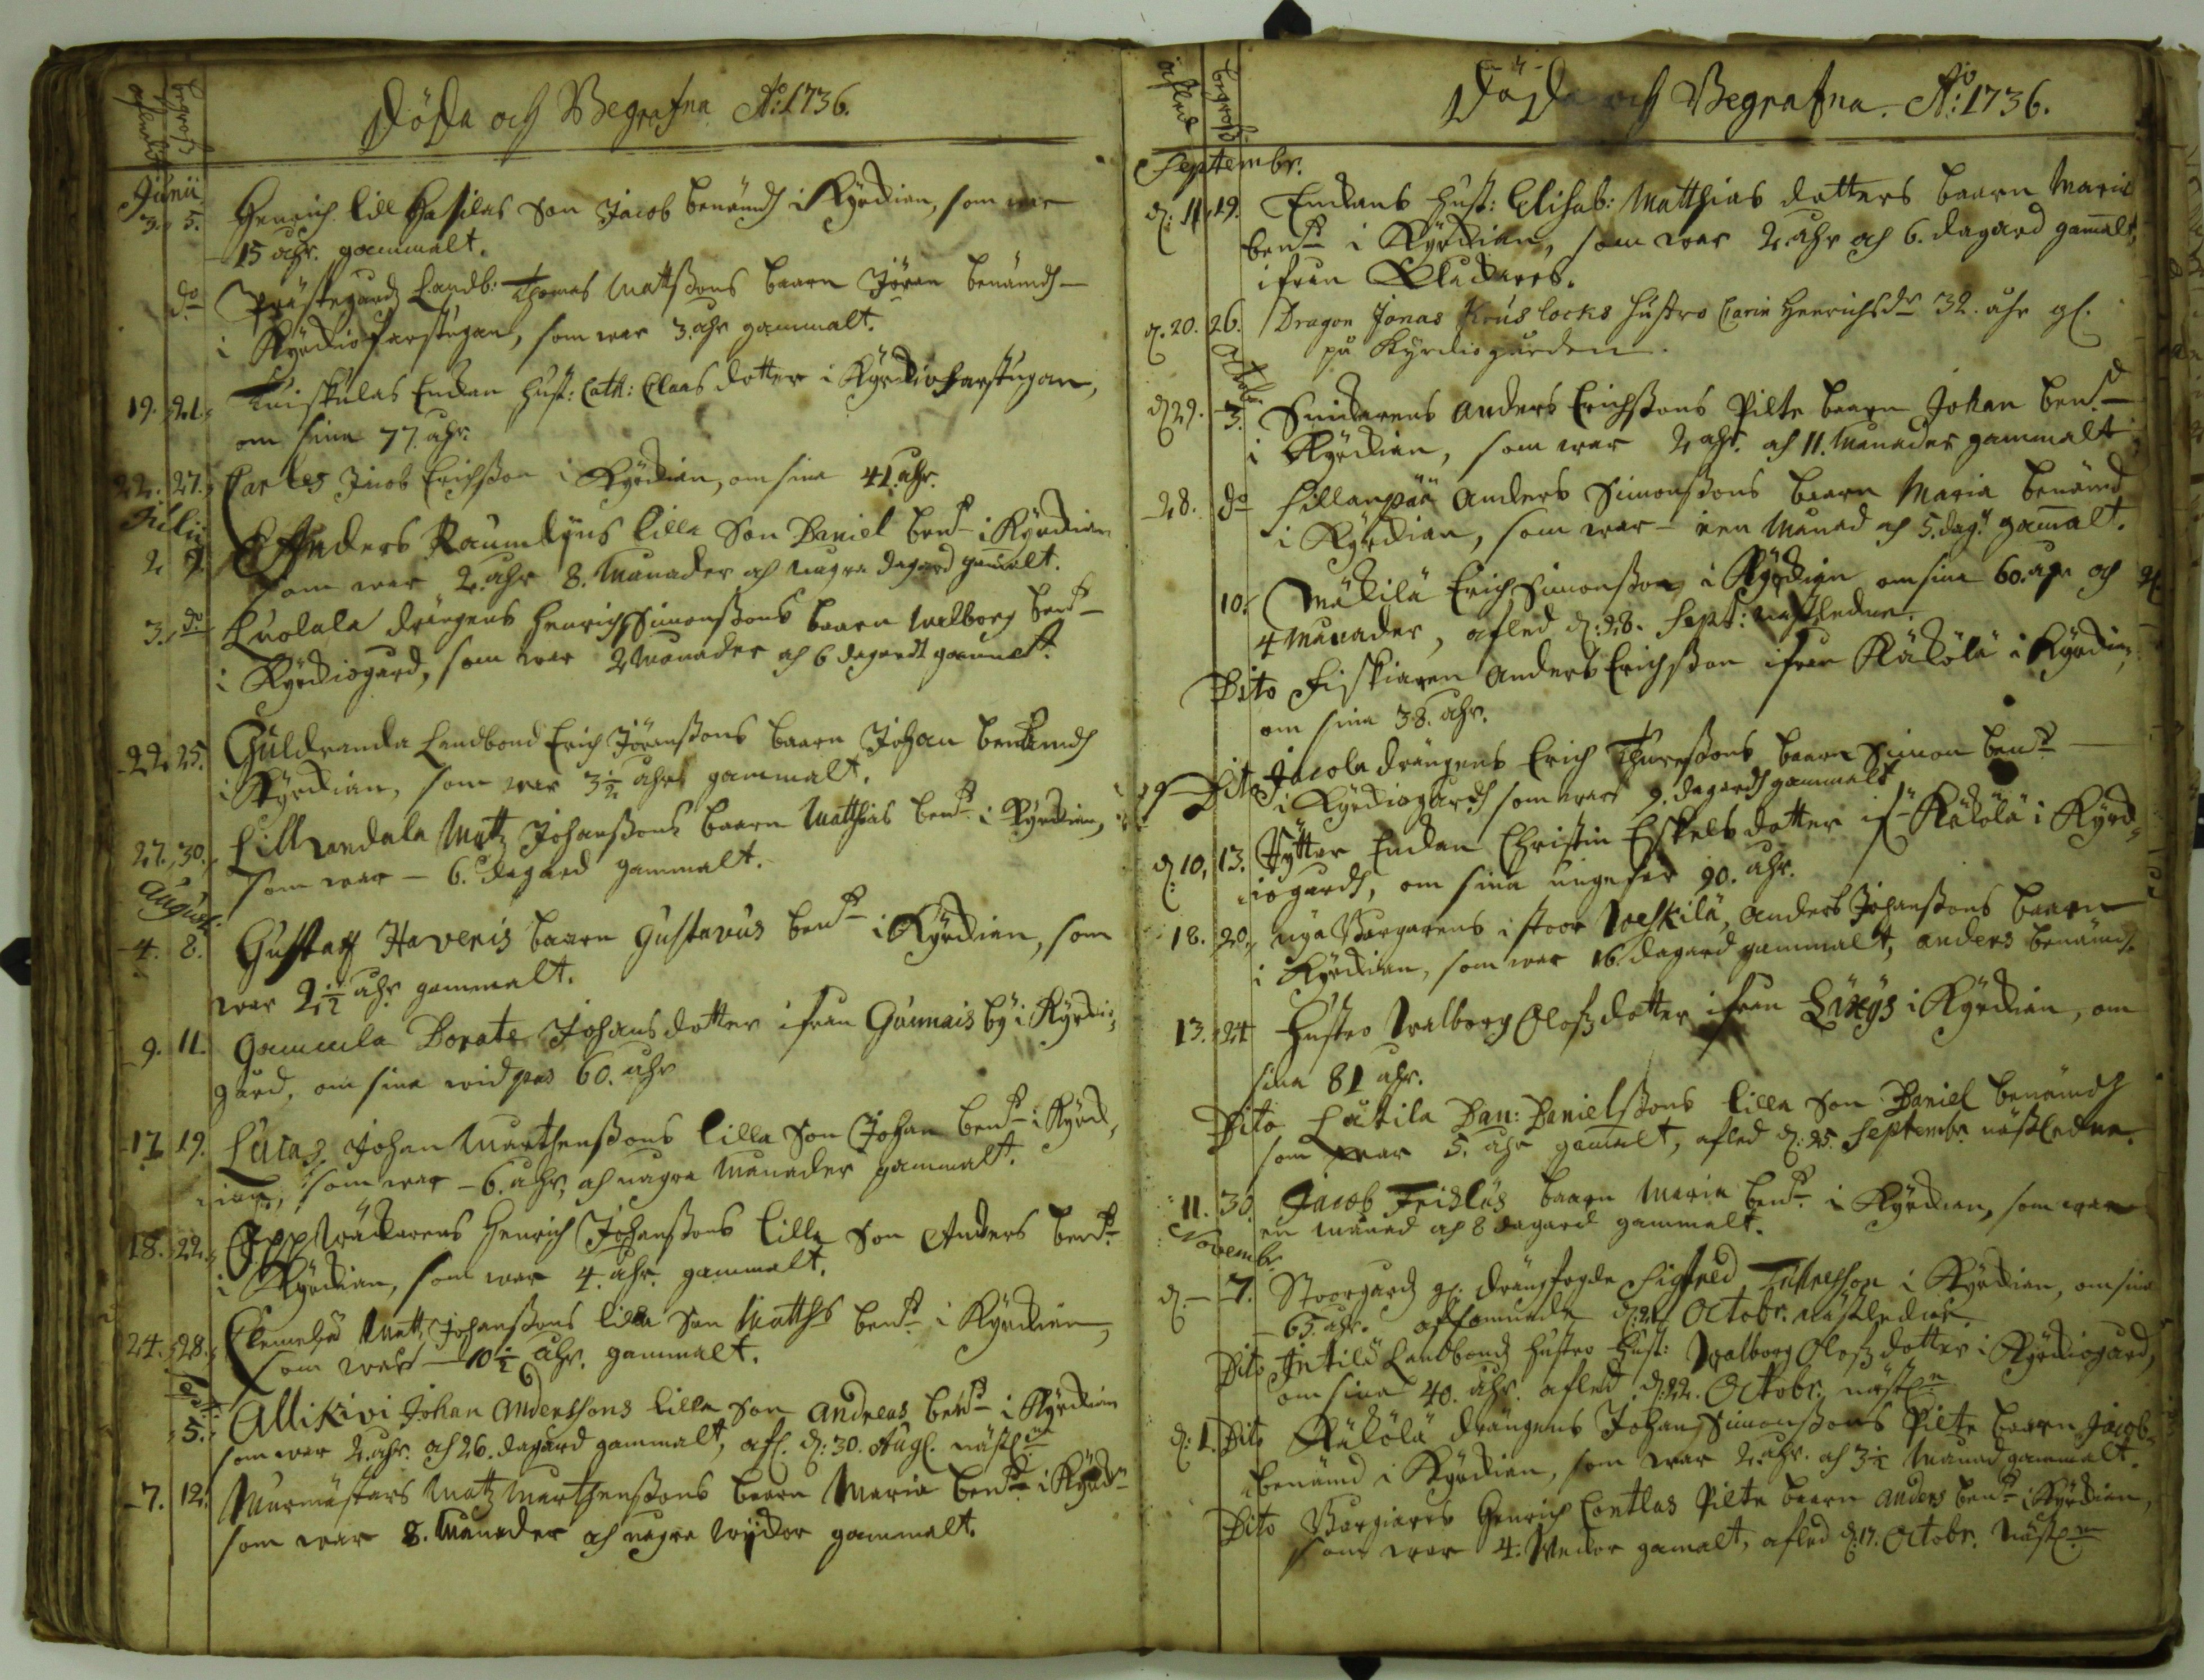 Döda och Begrafna Ao: 1736.
afled begrofs
Junii
3. 5. Henrich lill Hasilas Son Jacob benämd i Kyrckian, som war
15 åhr. gammalt.
do Prästegårds Landb: Thomas Mattssons baarn Jören benämd
i Kyrckiofarstugan, som war 3. åhr gammalt.
19. 21. Enckan hust: Cath: Claas dotter i Kyrckiofarstugan,
om sina 77. åhr.
22. 27. Jacob Erichsson i Kyrckian, om sina 41. åhr.
Julii
2. 7. Anders Raumlyns lilla Son Daniel bend i Kyrckian
som war 2. åhr 8. Månader och någre dagard gamalt.
3. do Luolala drängens Henrich Simonssons baarn Walborg bend
i Kyrckiogård, som war 2 Månader och 6 dagardt gammalt.
22. 25. Guldranda Landbond Erich Jöranssons baarn Johan benämd
i Kyrckian, som war 3 1/2 åhrs gammalt.
27. 30. Matz Johanssons baarn Matthias bend i Kyrckian,
som war - 6. dagard gammalt.
August.
4. 8. Gustaf Haveris baarn Gustavus bend i Kyrckian, som
war 2 1/2 åhr gammalt.
9. 11. Gammla Borate Johans dotter ifrån Gunnais by i Kyrckio
gård, om sina widpas 60. åhr
17. 19. Lucas Johan Marthenssons lilla Son Johan bend i Kyrck
ian, som war - 6. åhr, och någre Månader gammalt.
18. 22. Henrich Johanssons lilla Son Anders bend
i Kyrckian, som war 4. åhr. gammalt.
24. 28. Matts Johanssons lilla Son Matths bend i Kyrckian,
som war - 10 1/2 åhr. gammalt.
Sept:
5. Allikivi Johan Anderssons lilla Son Andreas bend i Kyrckian
som war 2. åhr. och 26. dagard gammalt, afl. d: 30. Aug. nästl.
7. 12. Murmästars Matz Marthenssons baarn Maria bend i Kyrck
som war 8. Månader och någre wyckor gammalt.
Döda och Begrafna. Ao: 1736.
afled begrofs
Septembr.
d: 11. 19. Enckans hust: Elisab: Matthias dotters baarn Maria
bend i Kyrckian, som war 2. åhr och 6. dagard gamalt,
ifrån
d. 20. 26. Dragon Jonas Kruslocks hustro Carin Henrichsdr 32. åhr gl.
på Kyrckiogården.
October
d 29. 3. Anders Erichssons Pilte baarn Johan bend
i Kyrckian, som war 2 åhr. och 11. Månader gammalt
28. do Anders Simonssons baarn Maria benämd
i Kyrckian, som war - een Månad och 5. dagr gamalt.
10. Mäkilä Erich Simonsson i Kyrckian om sina 60. åhr och
4 Månader, afled d: 28. Sept: nästledne.
Dito Fiskiaren Anders Erichsson ifrån Käkölä i Kyrckian,
om sina 38. åhr.
Dito Jacola drängens Erich Thuressons baarn Simon bend
i Kyrckiogård som war 9. dagard gammalt
d: 10. 13. Enckan Christin Eskels dotter if Käkölä i Kyrck
iogård, om sina ungefär 90. åhr.
18. 20. nya Borgarens i stoor Anders Johanssons baarn
i Kyrckian, som war 16. dagard gammalt, Anders benämd.
13. 24 Hustro Walborg Olofs dotter ifrån i Kyrckian, om
sina 81 åhr.
Dito Dan: Danielssons lilla Son Daniel benämd
som war 5. åhr gamalt, afled d: 25. Septembr. nästledne.
11. 30. Jacob baarn Maria bend i Kyrckian, som war
en månad och 8 dagard gammalt.
Novembr.
d. - 7. Storgårds gl. drängfogde Sigfred i Kyrckian, om sina
65. åhr. Octobr. nästledne.
Dito Landbonds hustro hust: Walborg Olofs dotter i Kyrckiogård,
om sina 40. åhr. afled d: 22. Octobr. nästln
d: 1. Dito Käkölä drängens Johan Simonssons Pilte baarn Jacob
benämd i Kyrckian, som war 2. åhr. och 3 1/2 Månad gammalt.
Dito Borgiares Henrich Contlas Pilte baarn Anders bend i Kyrckian,
som war 4. Weckor gamalt, afled d. 17. Octobr. nästln